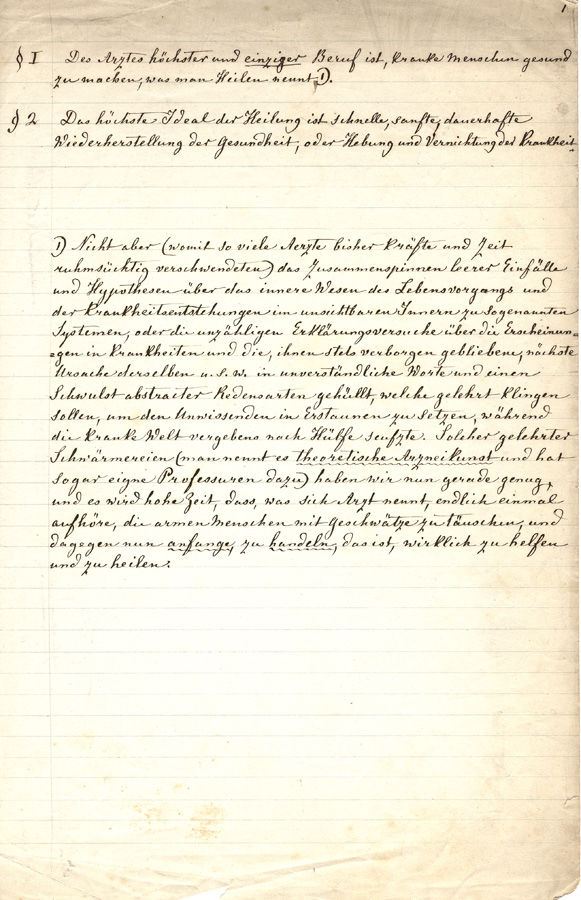 1
§ 1 Des Arztes höchster und einziger Beruf ist, kranke Menschen gesund
zu machen, was man Heilen nennt 1).
§ 2 Das höchste Ideal der Heilung ist schnelle, sanfte, dauerhafte
Wiederherstellung der Gesundheit, oder Hebung und Vernichtung der Krankheit
1) Nicht aber (womit so viele Aerzte bisher Kräfte und Zeit
ruhmsüchtig verschwendeten) das Zusammenspinnen leerer Einfälle
und Hypothesen über das innere Wesen des Lebensvorgangs und
der Krankheitsentstehungen im unsichtbaren Innern zu sogenannten
Systemen, oder die unzähligen Erklärungsversuche über die Erscheinun=
=gen in Krankheiten und die, ihnen stets verborgen gebliebene, nächste
Ursache derselben u. s. w. in unverständliche Worte und einen
Schwulst abstracter Redensarten gehüllt, welche gelehrt klingen
sollen, um den Unwissenden in Erstaunen zu setzen, während
die kranke Welt vergebens nach Hülfe seufzte. Solcher gelehrter
Schwärmereien (man nennt es theoretische Arzneikunst und hat
sogar eigne Professuren dazu) haben wir nun gerade genug,
und es wird hohe Zeit, dass, was sich Arzt nennt, endlich einmal
aufhöre, die armen Menschen mit Geschwätze zu täuschen, und
dagegen nun anfange, zu handeln, das ist, wirklich zu helfen
und zu heilen.